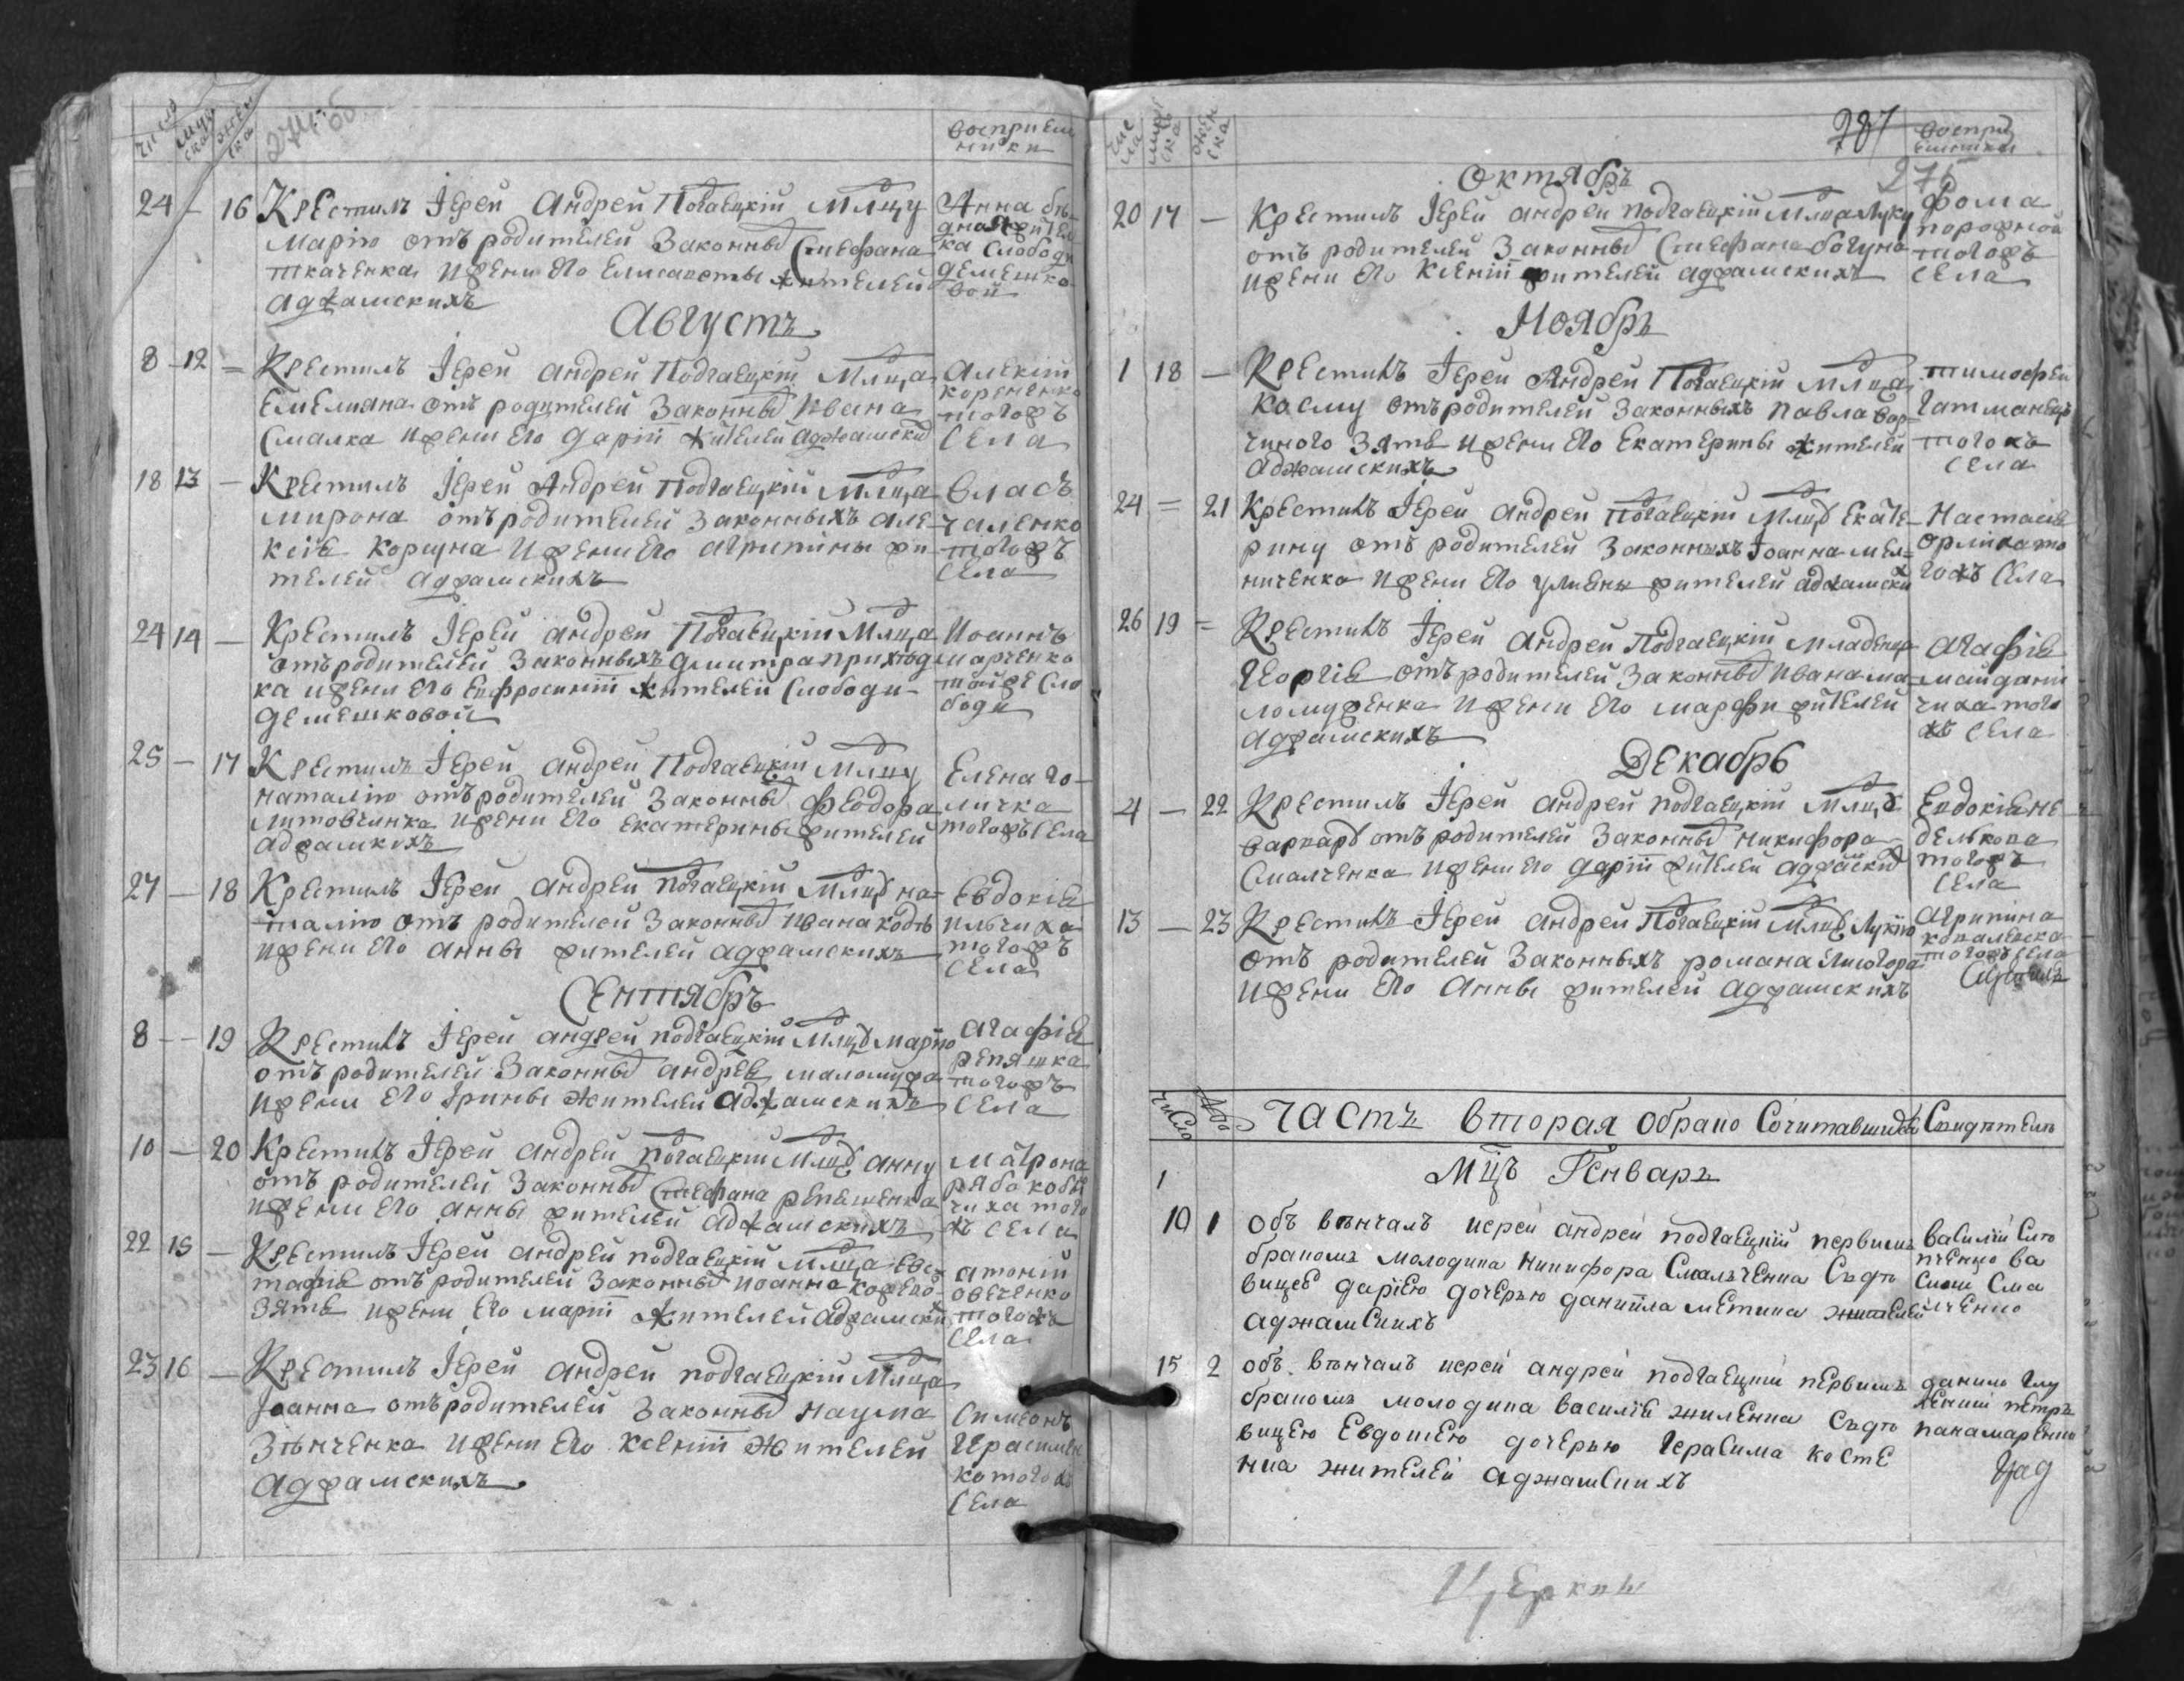 число мужеска женска
восприем
ники
24 – 16 Крестилъ Іерей Андрей Подгаецкій Млцу
Марію отъ родителей Законны Стефана
ткаченка ижени его Елисаветы жителей
аджамскихъ
Анна
ка Слободи
демешко
вой
Августъ
8 – 12 = Крестилъ Іерей Андрей Подгаецкій Млца
Емелиана отъ родителей Законны Ивана
Смалка ижени его Даріи жителей аджамски
Алексій
корененко
тогожъ
села
18 13 – Крестилъ Іерей Андрей Подгаецкій Млца
мирона отъ родителей Законныхъ але
ксія Корцуна ижени его агрипины жи
телей аджамскихъ
власъ
галенко
тогожъ
села
24 14 – Крестилъ Іерей Андрей Подгаецкій Млца
отъ родителей Законныхъ Дмитра приход
ка ижени его Евфросиніи жителей Слободи
демешковой
Иоаннъ
марченко
тойже Сло
боди
25 – 17 Крестилъ Іерей Андрей Подгаецкій Млцу
наталію отъ родителей Законны Феодора
литовченка ижени его Екатерины жителей
аджамкихъ
Елена го
личка
тогожъ села
27 – 18 Крестилъ Іерей Андрей Подгаецкій Млцу на
талію отъ родителей Законны Ивана
ижени его анны жителей аджамскихъ
Евдокія
ильчиха
тогожъ
села
Сентябръ
8 – – 19 Крестилъ Іерей Андрей Подгаецкій Млцу марію
отъ родителей Законны андрея маломужа
ижени его Ірины жителей аджамскихъ
агафія
репяшка
тогожъ
села
10 – 20 Крестилъ Іерей Андрей Подгаецкій Млцу анну
отъ родителей Законны Стефана репешенка
ижени его анны жителей аджамскихъ
Матрона
рябокобы
чиха того
жъ села
22 15 – Крестилъ Іерей Андрей Подгаецкій Млца Евс
тафія отъ родителей Законны Иоанна
зятя ижени его маріи жителей аджамски
антоній
овеченко
тогожъ
села
23 16 – Крестилъ Іерей Андрей Подгаецкій Млца
Іоанна отъ родителей Законны наума
Зѣнченка ижени его ксеніи жителей
аджамскихъ
Симеонъ
Герасимен
ко тогожъ
села
чис
ла мужеска женска
287
275
воспри
емники
октябръ
20 17 – Крестилъ Іерей андрей подгаецкій Млца Луку
отъ родителей Законны Стефана богуна
ижени его Ксеніи жителей аджамскихъ
Фома
порожной
тогожъ
села
Ноябръ
1 18 – Крестилъ Іерей Андрей Подгаецкій Млца
Косму отъ родителей Законныхъ павла вор
чиного зятя ижени его Екатерины жителей
аджамскихъ
тимофей
гатманецъ
тогожъ
села
24 = 21 Крестилъ Іерей Андрей Подгаецкій Млцу Екате
рину отъ родителей Законныхъ Іоанна мел
ниченка ижени его улиены жителей аджамски
Настасія
орлика то
гожъ села
26 19 = Крестилъ Іерей Андрей Подгаецкій младенца
Георгія отъ родителей Законны ивана ма
ломуженка ижени его марфи жителей
аджамскихъ
агафія
майдани
чиха того
жъ села
Декабрь
4 – 22 Крестилъ Іерей андрей подгаецкій Млцу
варвару отъ родителей Законны никифора
Смалченка ижени его даріи жителей аджамски
Евдокія не
делькова
тогожъ
села
13 – 23 Крестилъ Іерей Андрей Подгаецкій Млцу Лукію
отъ родителей Законныхъ романа лисогора
ижени его Анны жителей аджамскихъ
агрипина
ковалевска
тогожъ села
число
частъ вторая обрако Сочитавшихся Свидѣтели
Мцъ Генваръ
1
10 1 объ вѣнчалъ иерей андрей подгаецкій первимъ
бракомъ молодика никифора Смалъченка Съдѣ
вицею даріею дочерью даниила метика жителей
аджамскихъ
василій
ва
силій Сма
лченко
15 2 объ вѣнчалъ иерей андрей подгаецкій первимъ
бракомъ молодика василія жиленка Съдѣ
вицею Евдокіею дочерью Герасима косте
нка жителей аджамскихъ
данило
петръ
панамаренко
Церкви